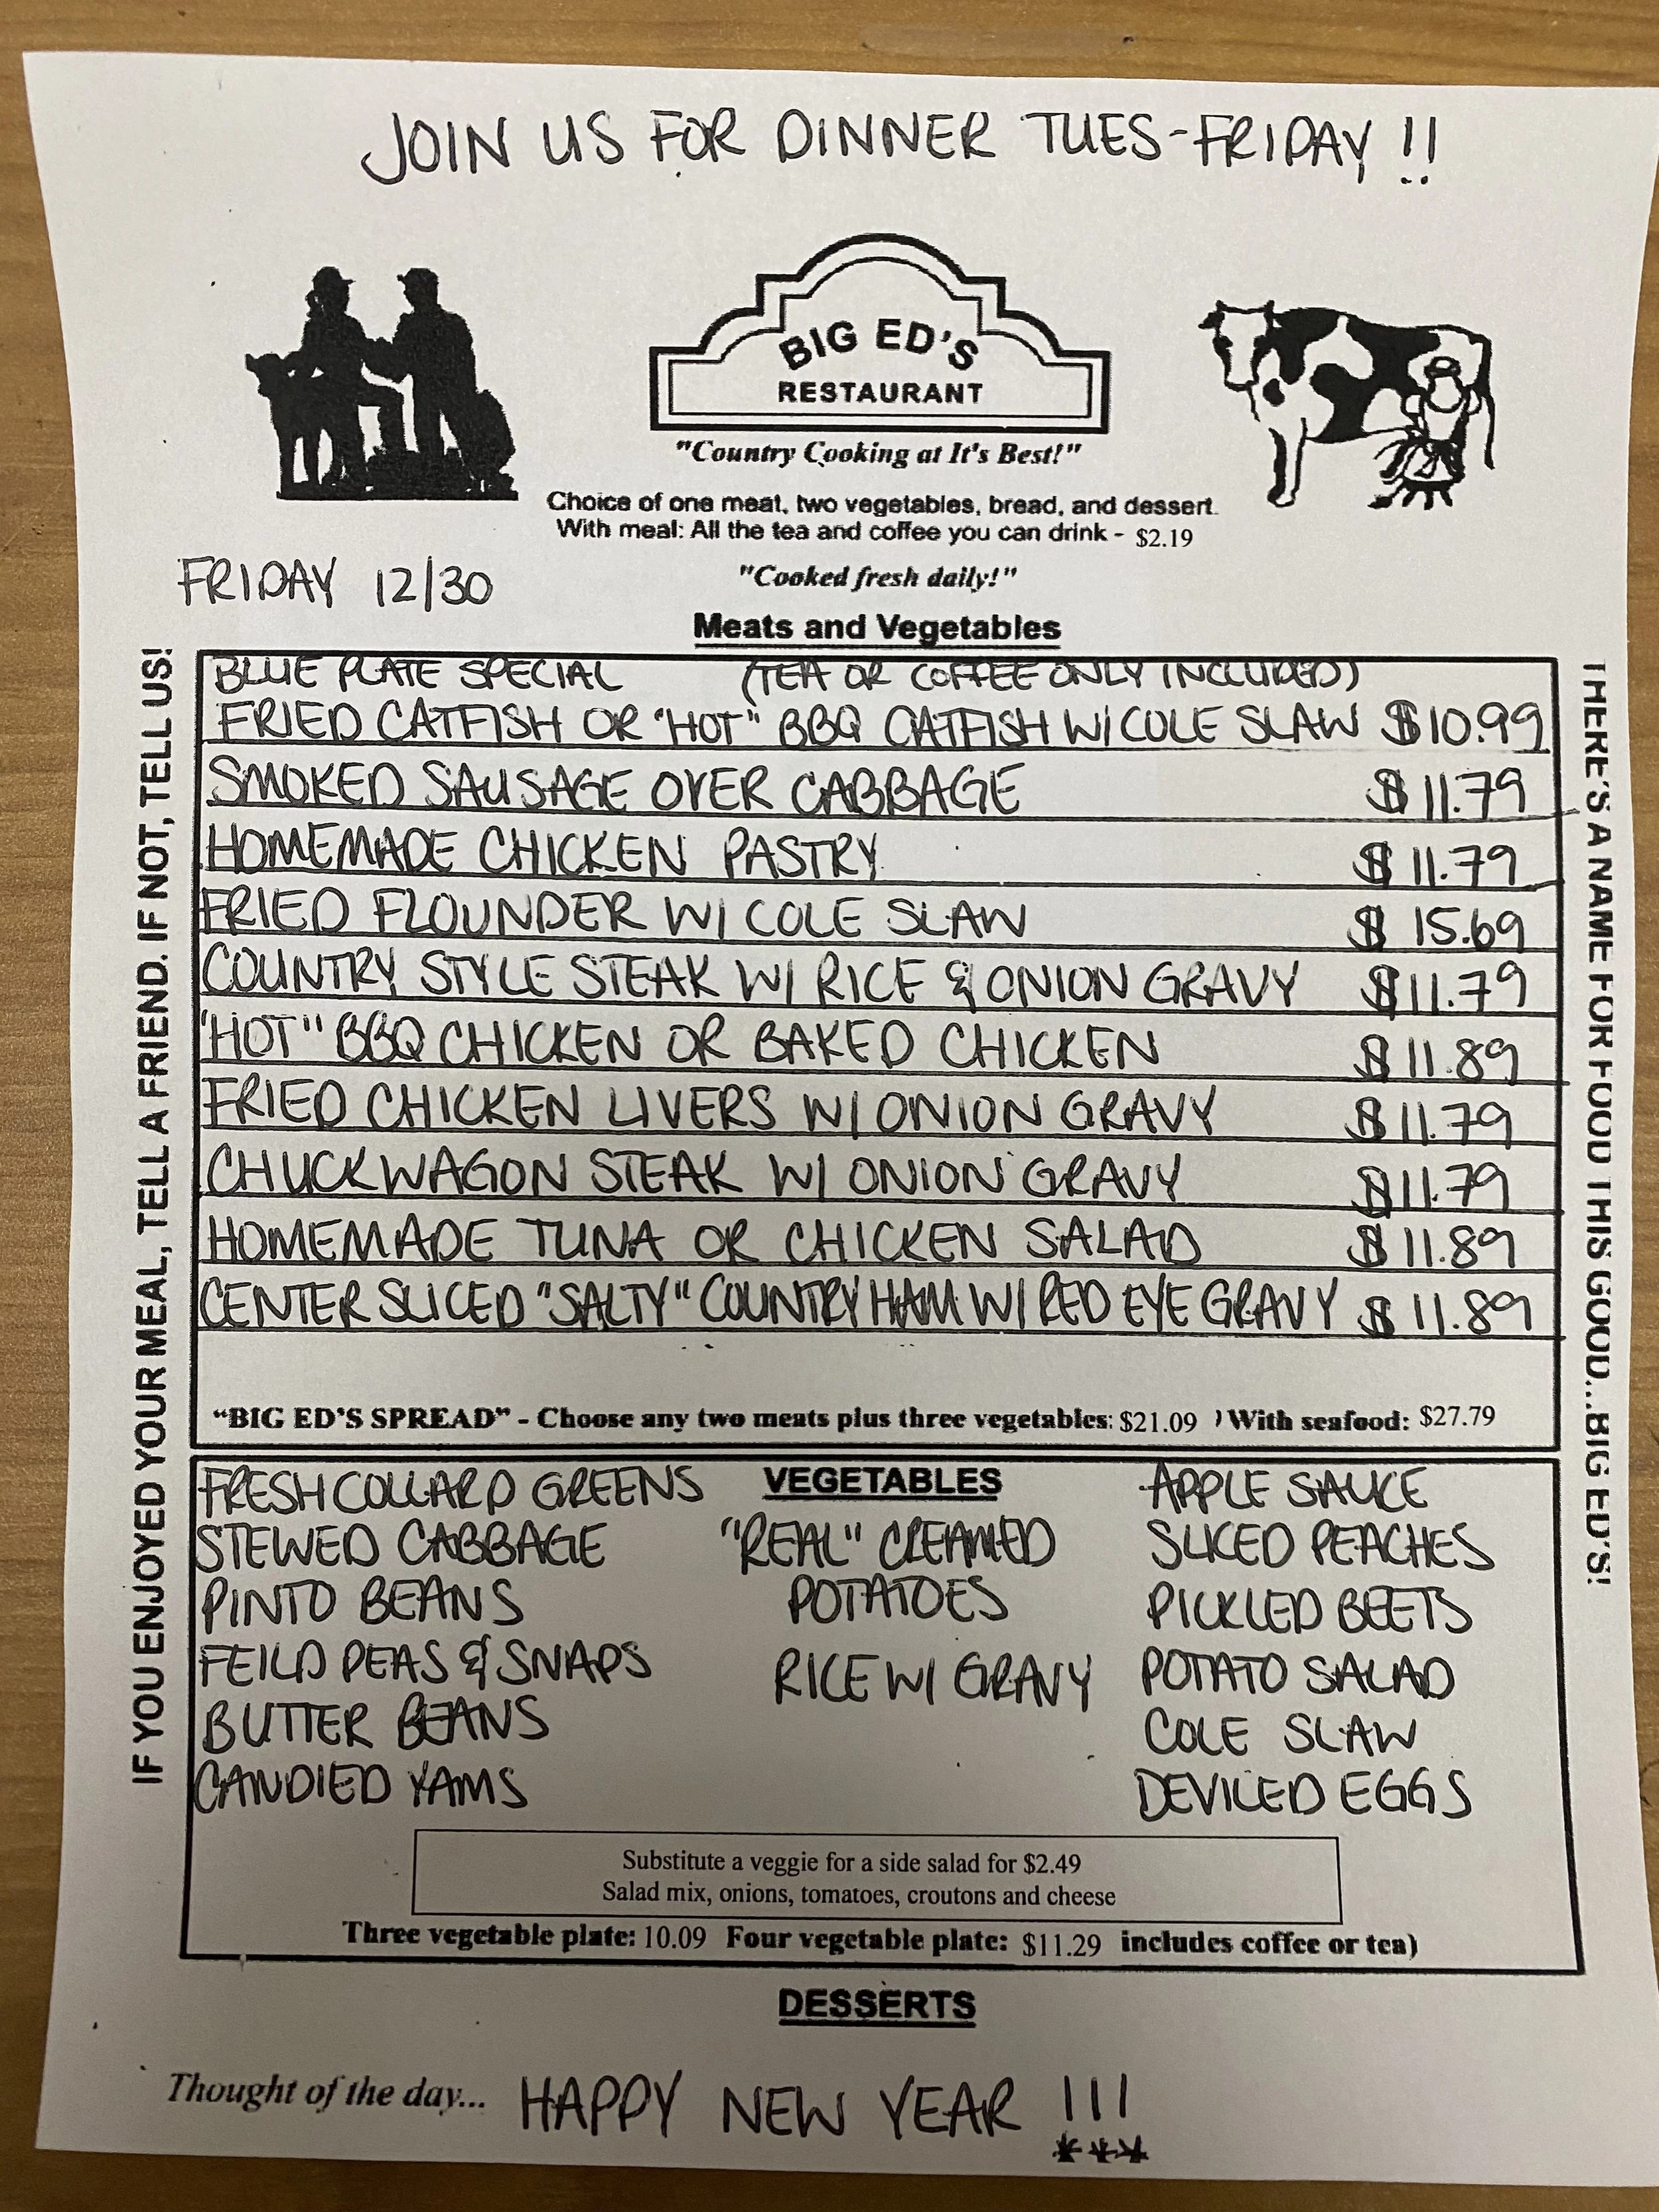 JOIN US FOR DINNER TUES-FRIDAY !!
BIG ED'S
RESTAURANT
"Country Cooking at It's Best!"
Choice of one meat, two vegetables, bread, and dessert.
With meal: All the tea and coffee you can drink - $2.19
FRIDAY 12/30
"Cooked fresh daily!"
Meats and Vegetables
IF YOU ENJOYED YOUR MEAL, TELL A FRIEND. IF NOT, TELL US!
BLUE PLATE SPECIAL (TEA OR COFFEE ONLY INCLUDED)
FRIED CATFISH OR "HOT" BBQ CATFISH W/ COLE SLAW $10.99
SMOKED SAUSAGE OVER CABBAGE $11.79
HOMEMADE CHICKEN PASTRY $11.79
FRIED FLOUNDER W/ COLE SLAW $15.69
COUNTRY STYLE STEAK W/ RICE & ONION GRAVY $11.79
"HOT" BBQ CHICKEN OR BAKED CHICKEN $11.89
FRIED CHICKEN LIVERS W/ ONION GRAVY $11.79
CHUCKWAGON STEAK W/ ONION GRAVY $11.79
HOMEMADE TUNA OR CHICKEN SALAD $11.89
CENTER SLICED "SALTY" COUNTRY HAM W/ RED EYE GRAVY $11.89
"BIG ED'S SPREAD" - Choose any two meats plus three vegetables: $21.09 ) With seafood: $27.79
THERE'S A NAME FOR FOOD THIS GOOD...BIG ED'S!
VEGETABLES
FRESH COLLARD GREENS
STEWED CABBAGE
PINTO BEANS
FEILD PEAS & SNAPS
BUTTER BEANS
CANDIED YAMS
"REAL" CREAMED
POTATOES
RICE W/ GRAVY
APPLE SAUCE
SLICED PEACHES
PICKLED BEETS
POTATO SALAD
COLE SLAW
DEVILED EGGS
Substitute a veggie for a side salad for $2.49
Salad mix, onions, tomatoes, croutons and cheese
Three vegetable plate: 10.09 Four vegetable plate: $11.29 includes coffee or tea)
DESSERTS
Thought of the day... HAPPY NEW YEAR !!!